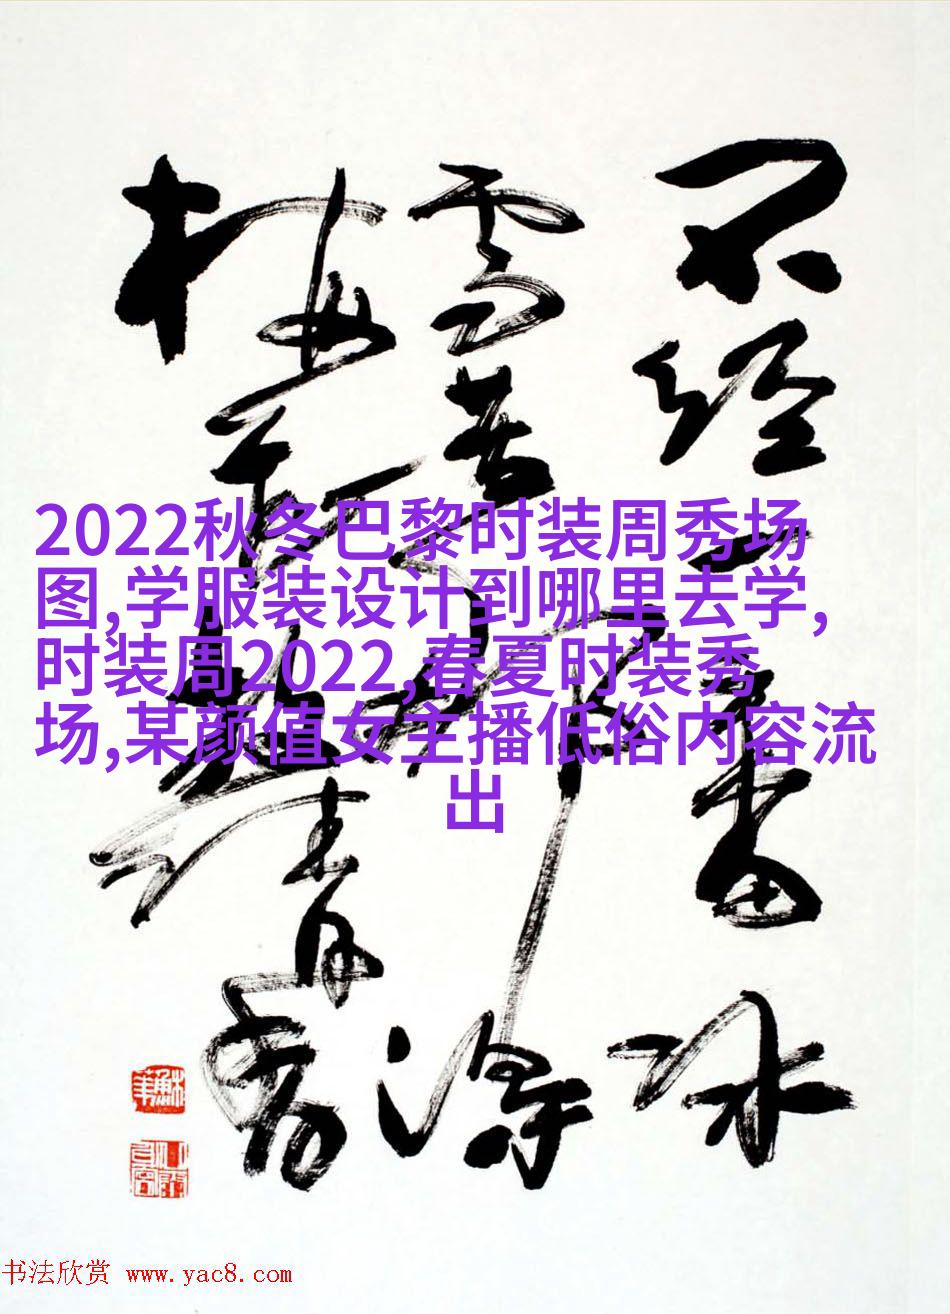 不经一番冰
雪苦哪得
梅花清香
2022秋冬巴黎时装周秀场
图,学服装设计到哪里去学,
时装周2022,春夏时装秀
场,某颜值女主播低俗内容流
出
书法欣赏 www.yac8.com